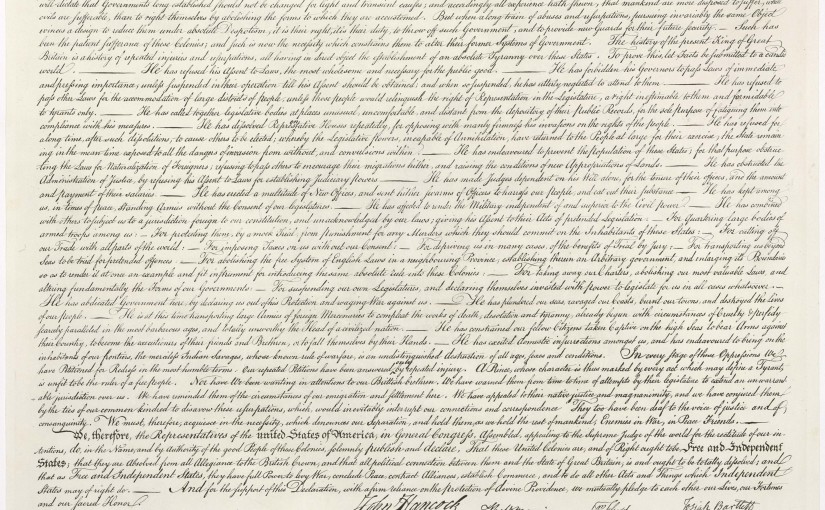 will dictate that Governments long established should not be changed for light and transient causes; and accordingly all experience hath shewn, that mankind are more disposed to suffer, while
evils are sufferable, than to right themselves by abolishing the forms to which they are accustomed. But when a long train of abuses and usurpations, pursuing invariably the same Object
evinces a design to reduce them under absolute Despotism, it is their right, it is their duty, to throw off such Government, and to provide new Guards for their future security.— Such has
been the patient sufferance of these Colonies; and such is now the necessity which constrains them to alter their former Systems of Government. The history of the present King of Great
Britain is a history of repeated injuries and usurpations, all having in direct object the establishment of an absolute Tyranny over these States. To prove this, let Facts be submitted to a candid
world. — He has refused his Assent to Laws, the most wholesome and necessary for the public good. — He has forbidden his Governors to pass Laws of immediate
and pressing importance, unless suspended in their operation till his Assent should be obtained; and when so suspended, he has utterly neglected to attend to them. — He has refused to
pass other Laws for the accommodation of large districts of people, unless those people would relinquish the right of Representation in the Legislature, a right inestimable to them and formidable
to tyrants only. — He has called together legislative bodies at places unusual, uncomfortable, and distant from the depository of their Public Records, for the sole purpose of fatiguing them into
compliance with his measures. — He has dissolved Representative Houses repeatedly, for opposing with manly firmness his invasions on the rights of the people. — He has refused for
a long time, after such dissolutions, to cause others to be elected; whereby the Legislative powers, incapable of Annihilation, have returned to the People at large for their exercise; the State remain
ing in the mean time exposed to all the dangers of invasion from without, and convulsions within. — He has endeavoured to prevent the population of these States; for that purpose obstruc
ting the Laws for Naturalization of Foreigners; refusing to pass others to encourage their migrations hither, and raising the conditions of new Appropriations of Lands. — He has obstructed the
Administration of Justice, by refusing his Assent to Laws for establishing Judiciary powers. — He has made Judges dependent on his Will alone, for the tenure of their offices, and the amount
and payment of their salaries. — He has erected a multitude of New Offices, and sent hither swarms of Officers to harrass our people, and eat out their substance. — He has kept among
us, in times of peace, Standing Armies without the Consent of our legislatures. — He has affected to render the Military independent of and superior to the Civil power. — He has combined
with others to subject us to a jurisdiction foreign to our constitution, and unacknowledged by our laws; giving his Assent to their Acts of pretended Legislation: — For Quartering large bodies of
armed troops among us: — For protecting them, by a mock Trial, from punishment for any Murders which they should commit on the Inhabitants of these States: — For cutting off
our Trade with all parts of the world: — For imposing Taxes on us without our Consent: — For depriving us in many cases, of the benefits of Trial by Jury: — For transporting us beyond
Seas to be tried for pretended offences — For abolishing the free System of English Laws in a neighbouring Province, establishing therein an Arbitrary government, and enlarging its Boundaries
so as to render it at once an example and fit instrument for introducing the same absolute rule into these Colonies: — For taking away our Charters, abolishing our most valuable Laws, and
altering fundamentally the Forms of our Governments: — For suspending our own Legislatures, and declaring themselves invested with power to legislate for us in all cases whatsoever. —
He has abdicated Government here, by declaring us out of his Protection and waging War against us. — He has plundered our seas, ravaged our Coasts, burnt our towns, and destroyed the lives
of our people. — He is at this time transporting large Armies of foreign Mercenaries to compleat the works of death, desolation and tyranny, already begun with circumstances of Cruelty & perfidy
scarcely paralleled in the most barbarous ages, and totally unworthy the Head of a civilized nation. — He has constrained our fellow Citizens taken Captive on the high Seas to bear Arms against
their Country, to become the executioners of their friends and Brethren, or to fall themselves by their Hands. — He has excited domestic insurrections amongst us, and has endeavoured to bring on the
inhabitants of our frontiers, the merciless Indian Savages, whose known rule of warfare, is an undistinguished destruction of all ages, sexes and conditions. In every stage of these Oppressions We
have Petitioned for Redress in the most humble terms: Our repeated Petitions have been answered only by repeated injury. A Prince, whose character is thus marked by every act which may define a Tyrant,
is unfit to be the ruler of a free people. Nor have We been wanting in attentions to our Brittish brethren. We have warned them from time to time of attempts by their legislature to extend an unwarrant
able jurisdiction over us. We have reminded them of the circumstances of our emigration and settlement here. We have appealed to their native justice and magnanimity, and we have conjured them
by the ties of our common kindred to disavow these usurpations, which, would inevitably interrupt our connections and correspondence They too have been deaf to the voice of justice and of
consanguinity. We must, therefore, acquiesce in the necessity, which denounces our Separation, and hold them, as we hold the rest of mankind, Enemies in War, in Peace Friends. —
We, therefore, the Representatives of the united States of America, in General Congress, Assembled, appealing to the Supreme Judge of the world for the rectitude of our in
tentions, do, in the Name, and by Authority of the good People of these Colonies, solemnly publish and declare, That these United Colonies are, and of Right ought to be Free and Independent
States; that they are Absolved from all Allegiance to the British Crown, and that all political connection between them and the State of Great Britain, is and ought to be totally dissolved; and
that as Free and Independent States, they have full Power to levy War, conclude Peace, contract Alliances, establish Commerce, and to do all other Acts and Things which Independent
States may of right do. — And for the support of this Declaration, with a firm reliance on the protection of divine Providence, we mutually pledge to each other our Lives, our Fortunes
and our sacred Honor.
John Hancock
Josiah Bartlett